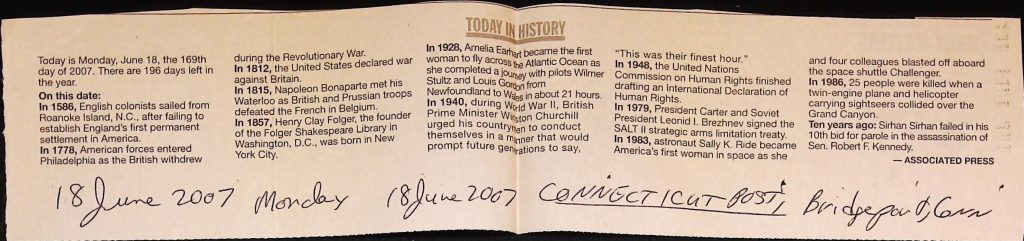 TODAY IN HISTORY
Today is Monday, June 18, the 169th
day of 2007. There are 196 days left in
the year.
On this date:
In 1586, English colonists sailed from
Roanoke Island, N.C., after failing to
establish England's first permanent
settlement in America.
In 1778, American forces entered
Philadelphia as the British withdrew
during the Revolutionary War.
In 1812, the United States declared war
against Britain.
In 1815, Napoleon Bonaparte met his
Waterloo as British and Prussian troops
defeated the French in Belgium.
In 1857, Henry Clay Folger, the founder
of the Folger Shakespeare Library in
Washington, D.C., was born in New
York City.
In 1928, Amelia Earhart became the first
woman to fly across the Atlantic Ocean as
she completed a journey with pilots Wilmer
Stultz and Louis Gordon from
Newfoundland to Wales in about 21 hours.
In 1940, during World War II, British
Prime Minister Winston Churchill
urged his countrymen to conduct
themselves in a manner that would
prompt future generations to say,
"This was their finest hour."
In 1948, the United Nations
Commission on Human Rights finished
drafting an International Declaration of
Human Rights.
In 1979, President Carter and Soviet
President Leonid I. Brezhnev signed the
SALT II strategic arms limitation treaty.
In 1983, astronaut Sally K. Ride became
America's first woman in space as she
and four colleagues blasted off aboard
the space shuttle Challenger.
In 1986, 25 people were killed when a
twin-engine plane and helicopter
carrying sightseers collided over the
Grand Canyon.
Ten years ago: Sirhan Sirhan failed in his
10th bid for parole in the assassination of
Sen. Robert F. Kennedy.
— ASSOCIATED PRESS
18 June 2007 Monday 18 June 2007 CONNECTICUT POST, Bridgeport, Conn